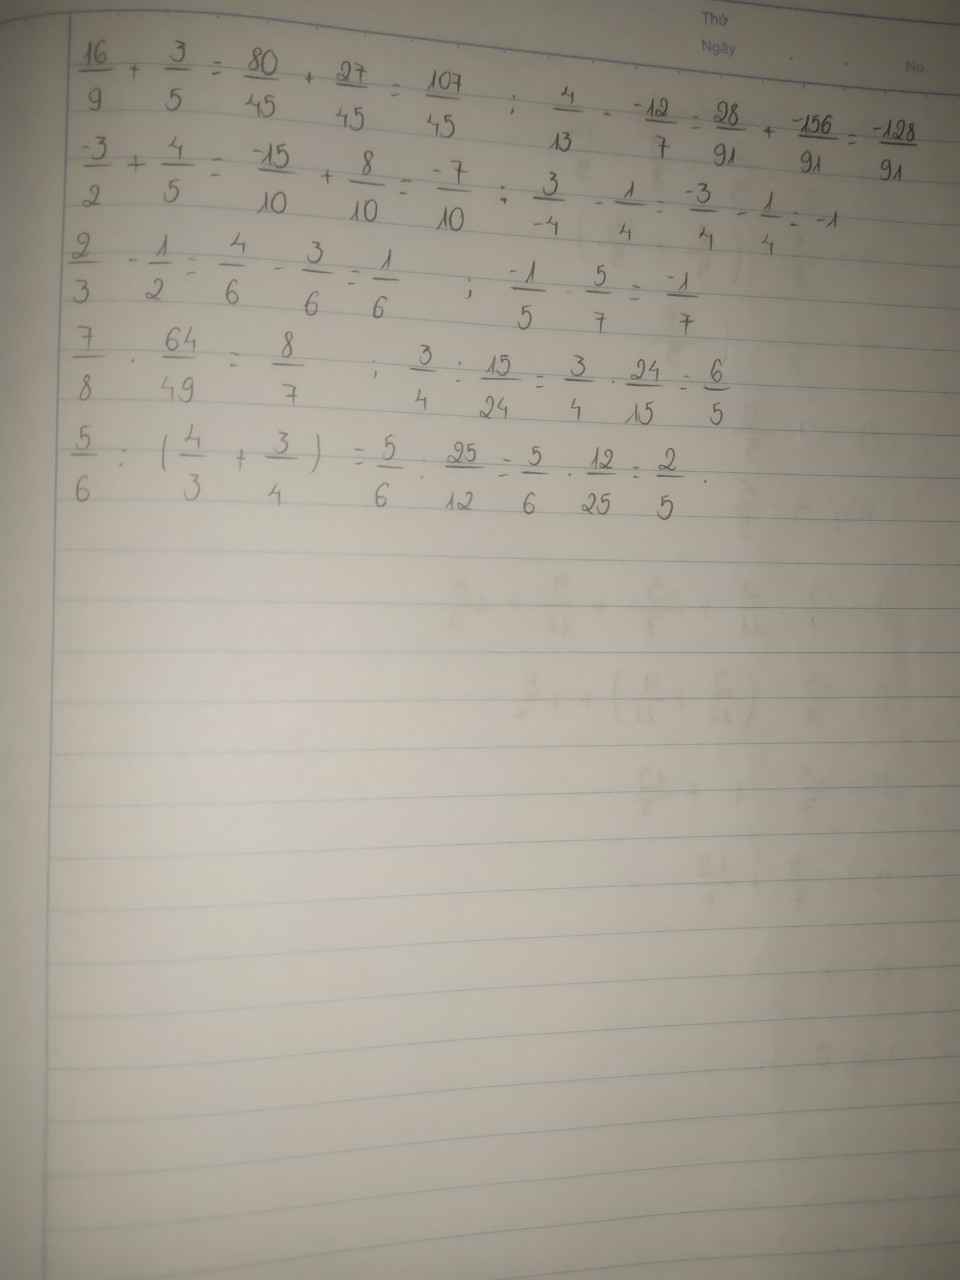 Thứ
Ngày
No.
16/9 + 3/5 = 80/45 + 27/45 = 107/45 ; 4/13 - -12/7 = 28/91 + -156/91 = -128/91
-3/2 + 4/5 = -15/10 + 8/10 = -7/10 ; 3/-4 - 1/4 = -3/4 - 1/4 = -1
2/3 - 1/2 = 4/6 - 3/6 = 1/6 ; -1/5 . 5/7 = -1/7
7/8 . 64/49 = 8/7 ; 3/4 : 15/24 = 3/4 . 24/15 = 6/5
5/6 : (4/3 + 3/4) = 5/6 . 25/12 = 5/6 . 12/25 = 2/5 .